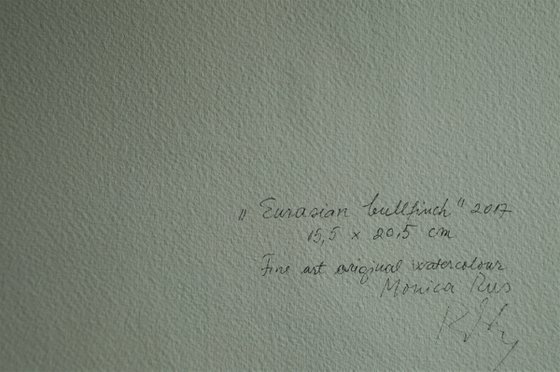 „Eurasian bullfinch" 2017
15,5 x 20,5 cm
Fine art original watercolour
Monica Rus